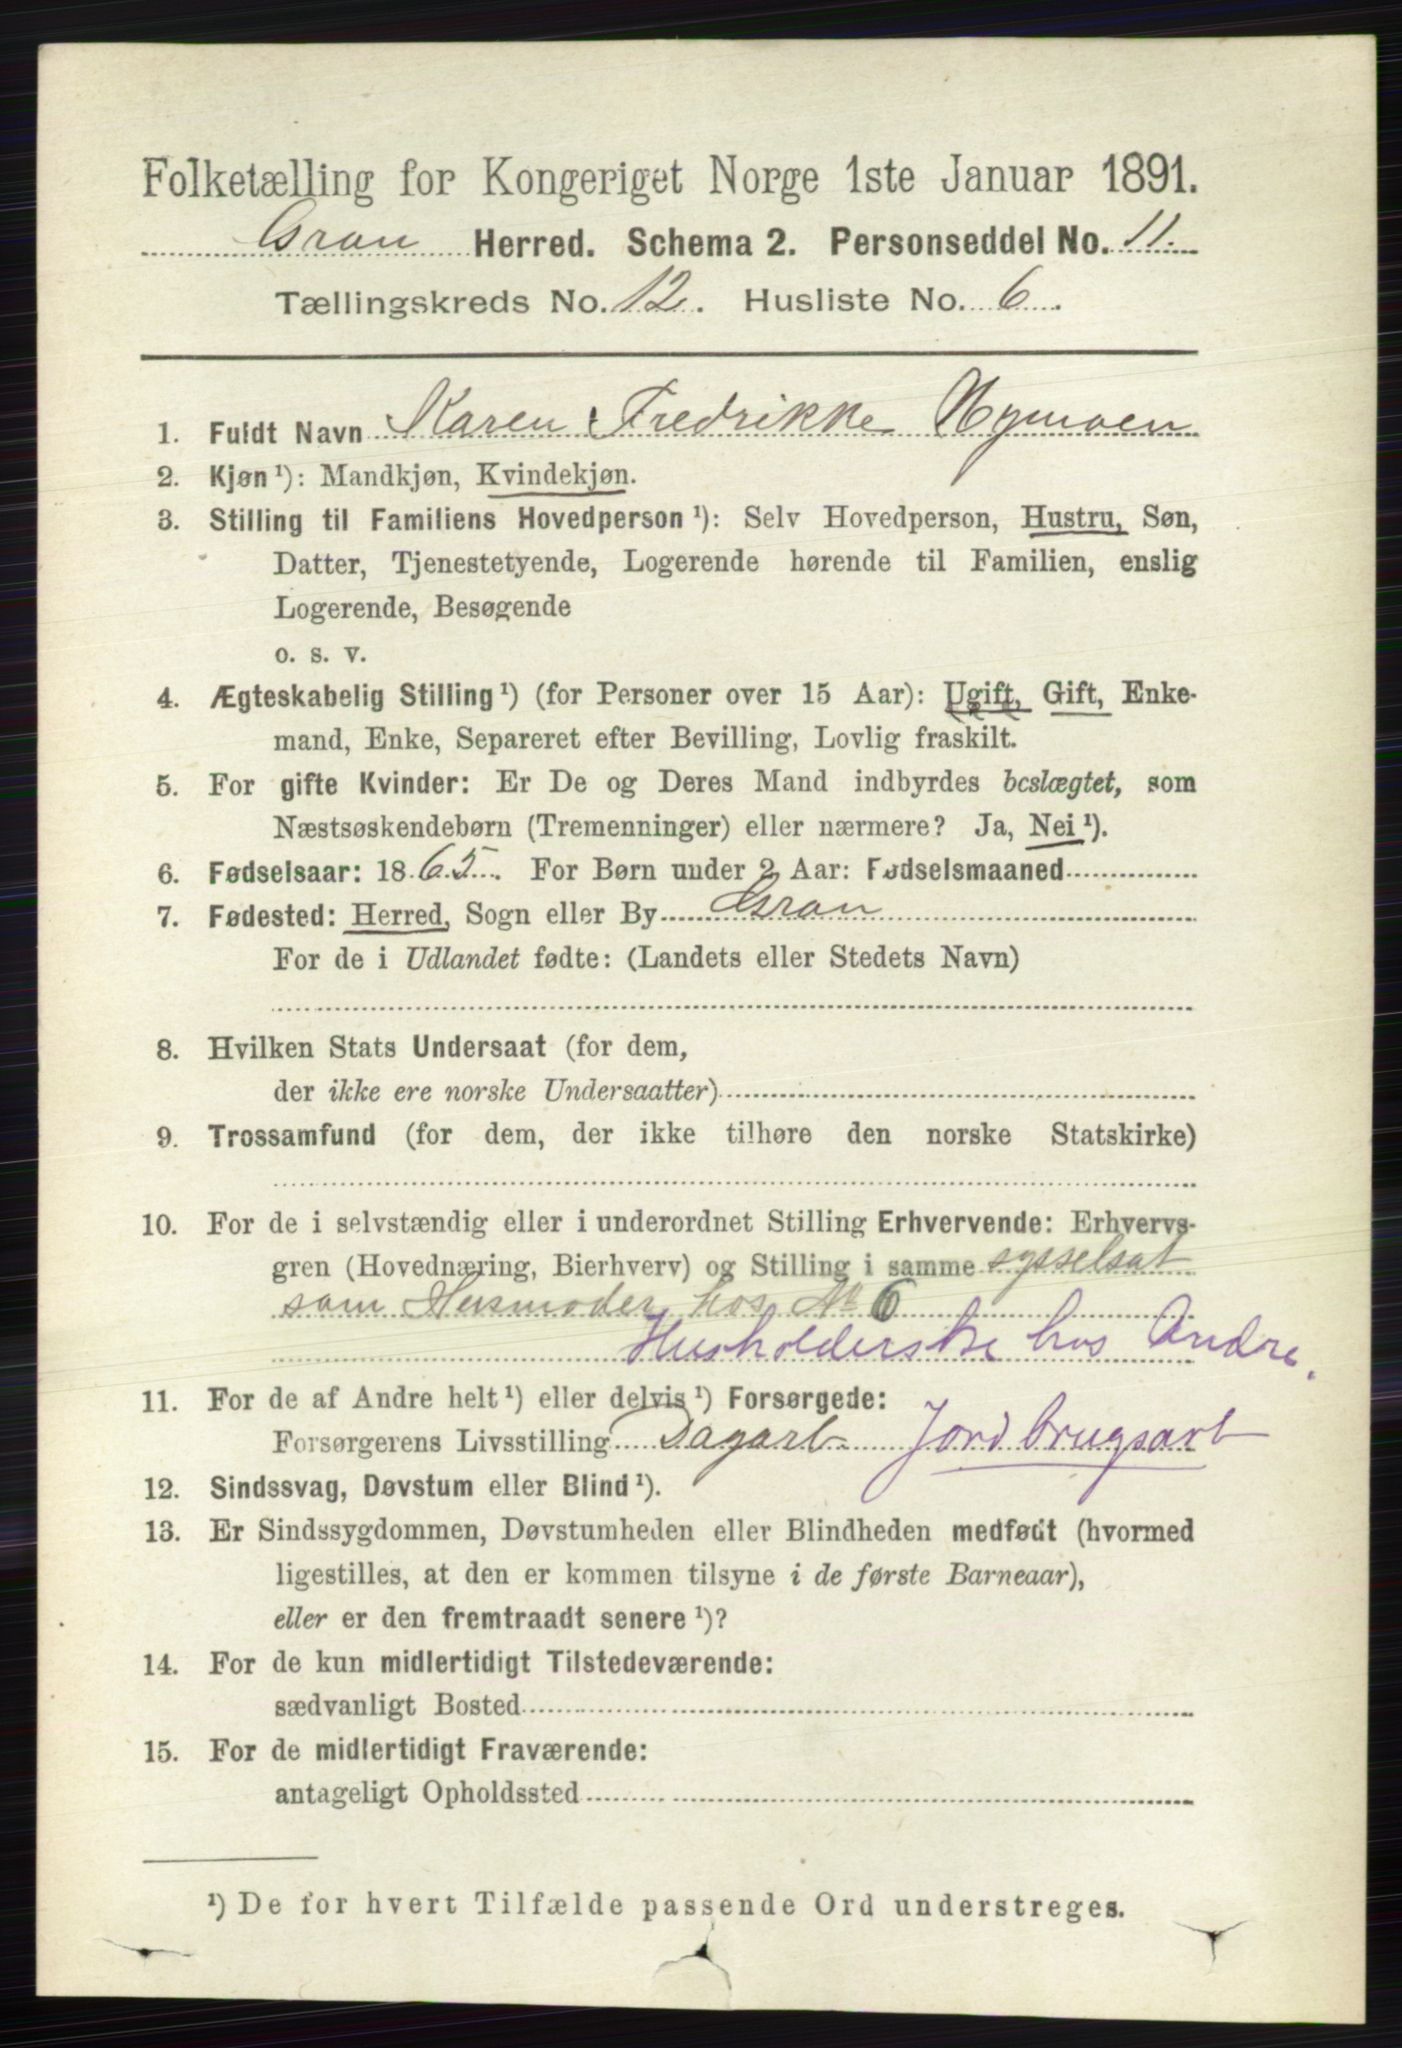 Folketælling for Kongeriget Norge 1ste Januar 1891.
Gran Herred. Schema 2. Personseddel No. 11.
Tællingskreds No. 12. Husliste No. 6.
1. Fuldt Navn Karen Fredrikke Nymoen
2. Kjøn ¹): Mandkjøn, Kvindekjøn.
3. Stilling til Familiens Hovedperson ¹): Selv Hovedperson, Hustru, Søn,
Datter, Tjenestetyende, Logerende hørende til Familien, enslig
Logerende, Besøgende
o. s. v.
4. Ægteskabelig Stilling ¹) (for Personer over 15 Aar): Ugift, Gift, Enke-
mand, Enke, Separeret efter Bevilling, Lovlig fraskilt.
5. For gifte Kvinder: Er De og Deres Mand indbyrdes beslægtet, som
Næstsøskendebørn (Tremenninger) eller nærmere? Ja, Nei ¹).
6. Fødselsaar: 1865. For Børn under 2 Aar: Fødselsmaaned
7. Fødested: Herred, Sogn eller By Gran
For de i Udlandet fødte: (Landets eller Stedets Navn)
8. Hvilken Stats Undersaat (for dem,
der ikke ere norske Undersaatter)
9. Trossamfund (for dem, der ikke tilhøre den norske Statskirke)
10. For de i selvstændig eller i underordnet Stilling Erhvervende: Erhvervs-
gren (Hovednæring, Bierhverv) og Stilling i samme sysselsat
som Husmoder hos No 6
Husholderske hos Andre.
11. For de af Andre helt ¹) eller delvis ¹) Forsørgede:
Forsørgerens Livsstilling Dagarb. Jordbrugsarb
12. Sindssvag, Døvstum eller Blind ¹).
13. Er Sindssygdommen, Døvstumheden eller Blindheden medfødt (hvormed
ligestilles, at den er kommen tilsyne i de første Barneaar),
eller er den fremtraadt senere ¹)?
14. For de kun midlertidigt Tilstedeværende:
sædvanligt Bosted
15. For de midlertidigt Fraværende:
antageligt Opholdssted
¹) De for hvert Tilfælde passende Ord understreges.